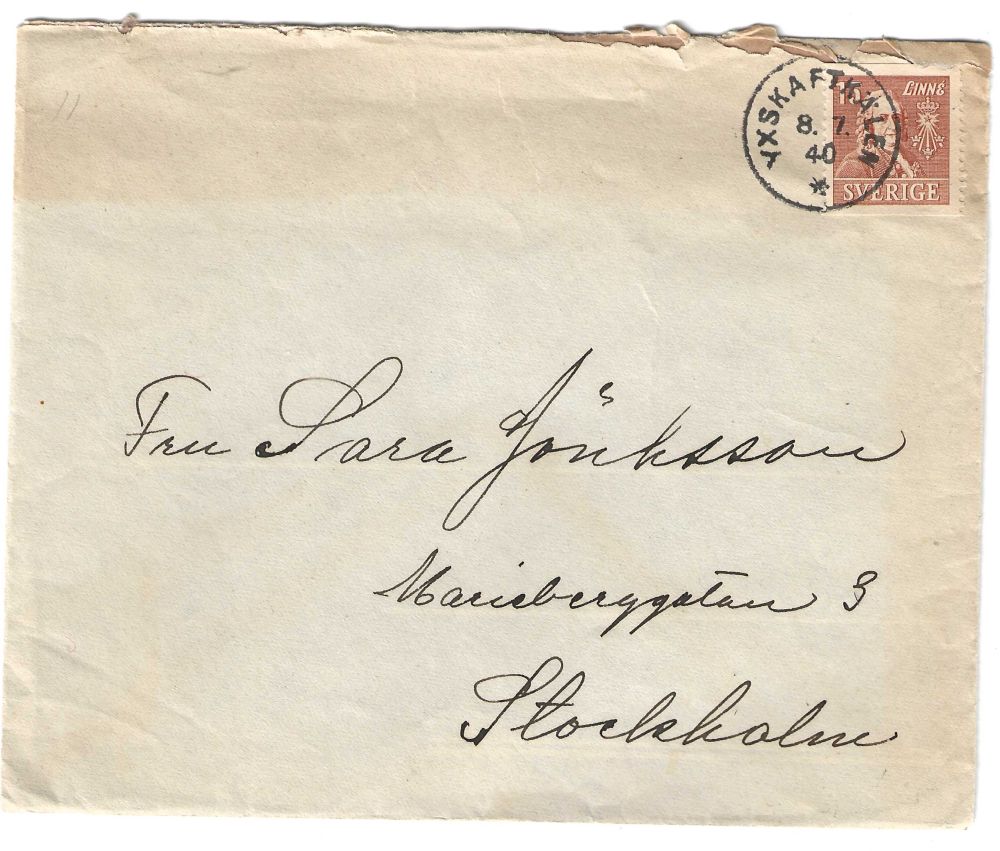 YXSKAFTKÄLEN
8. 7.
40
LINNÉ
SVERIGE
Fru Sara Jönksson
Marieberggatan 3
Stockholm